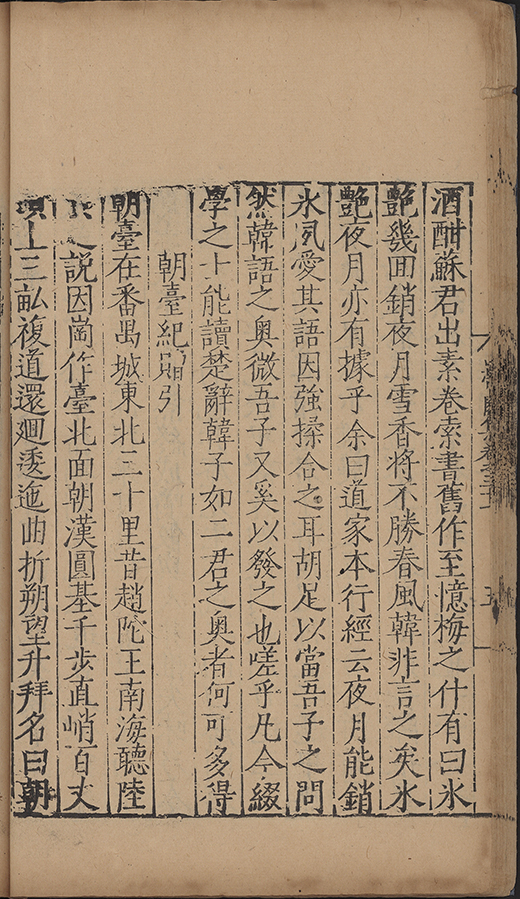 酒酣蘇君出素卷索書舊作至憶梅之什有曰氷
艶幾囬銷夜月雪香將不勝春風韓非言之矣氷
艶夜月亦有據乎余曰道家本行經云夜月能銷
氷夙愛其語因強揉合之耳胡足以當吾子之問
然韓語之奥微吾子又奚以發之也嗟乎凡今綴
學之士能讀楚辭韓子如二君之奥者何可多得
朝臺紀賜引
朝臺在番禺城東北三十里昔趙陀王南海聽陸
之說因崗作臺北面朝漢圓基千步直峭百丈
頂上三畆複道還廻逶迤曲折朔望升拜名曰朝